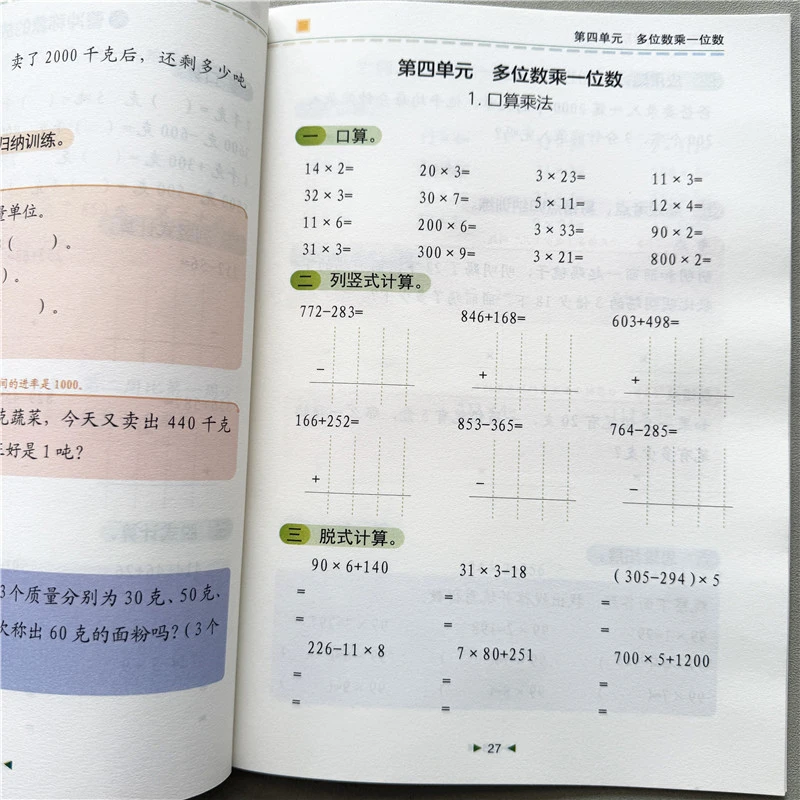 卖了2000千克后，还剩多少吨
归纳训练。
量单位。
(　　)。
)。
)。
间的进率是1000。
克蔬菜，今天又卖出440千克
正好是1吨？
3个质量分别为30克、50克、
次称出60克的面粉吗？(3个
第四单元　多位数乘一位数
第四单元　多位数乘一位数
1.口算乘法
一　口算。
14×2=　20×3=　3×23=　11×3=
32×3=　30×7=　5×11=　12×4=
11×6=　200×6=　3×33=　90×2=
31×3=　300×9=　3×21=　800×2=
二　列竖式计算。
772−283=　846+168=　603+498=
−　+　+
166+252=　853−365=　764−285=
+　−　−
三　脱式计算。
90×6+140　31×3−18　(305−294)×5
=　=　=
=　=　=
226−11×8　7×80+251　700×5+1200
=　=　=
=　=　=
27